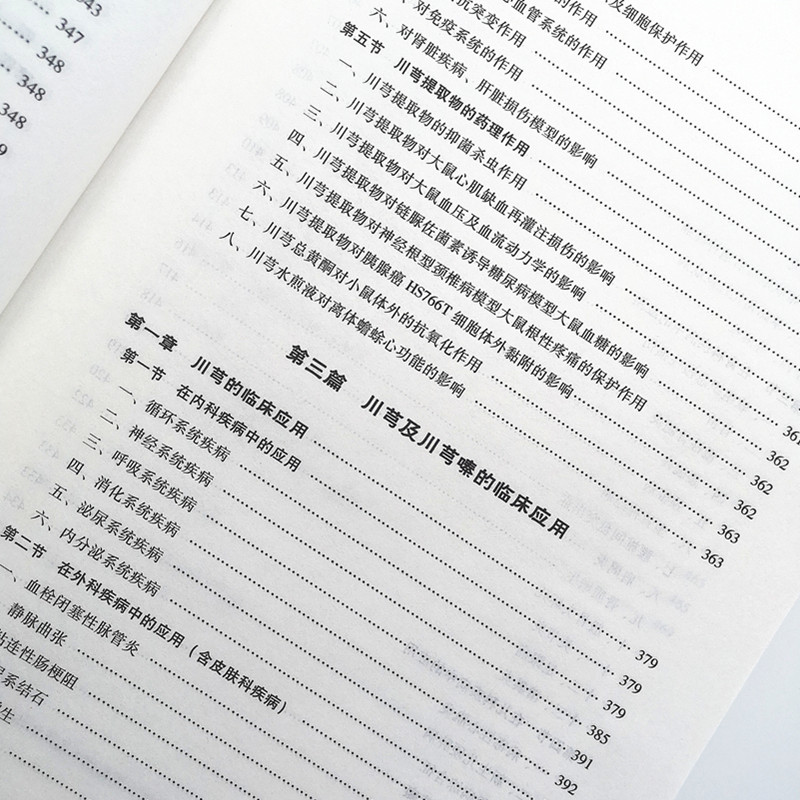 343
347
348
348
348
9
及细胞保护作用
血管系统的作用
抗突变作用
对免疫系统的作用
六、对肾脏疾病、肝脏损伤模型的影响
第五节 川芎提取物的药理作用
一、川芎提取物的抑菌杀虫作用
二、川芎提取物对大鼠心肌缺血再灌注损伤的影响
三、川芎提取物对大鼠血压及血流动力学的影响
四、川芎提取物对链脲佐菌素诱导糖尿病模型大鼠血糖的影响
五、川芎提取物对神经根型颈椎病模型大鼠根性疼痛的保护作用
六、川芎提取物对胰腺癌 HS766T 细胞体外黏附的影响
七、川芎总黄酮对小鼠体外的抗氧化作用
八、川芎水煎液对离体蟾蜍心功能的影响
362
362
362
363
363
第三篇 川芎及川芎嗪的临床应用
第一章 川芎的临床应用
第一节 在内科疾病中的应用
一、循环系统疾病
二、神经系统疾病
三、呼吸系统疾病
四、消化系统疾病
五、泌尿系统疾病
六、内分泌系统疾病
第二节 在外科疾病中的应用（含皮肤科疾病）
一、血栓闭塞性脉管炎
静脉曲张
粘连性肠梗阻
系结石
生
379
379
379
385
391
392